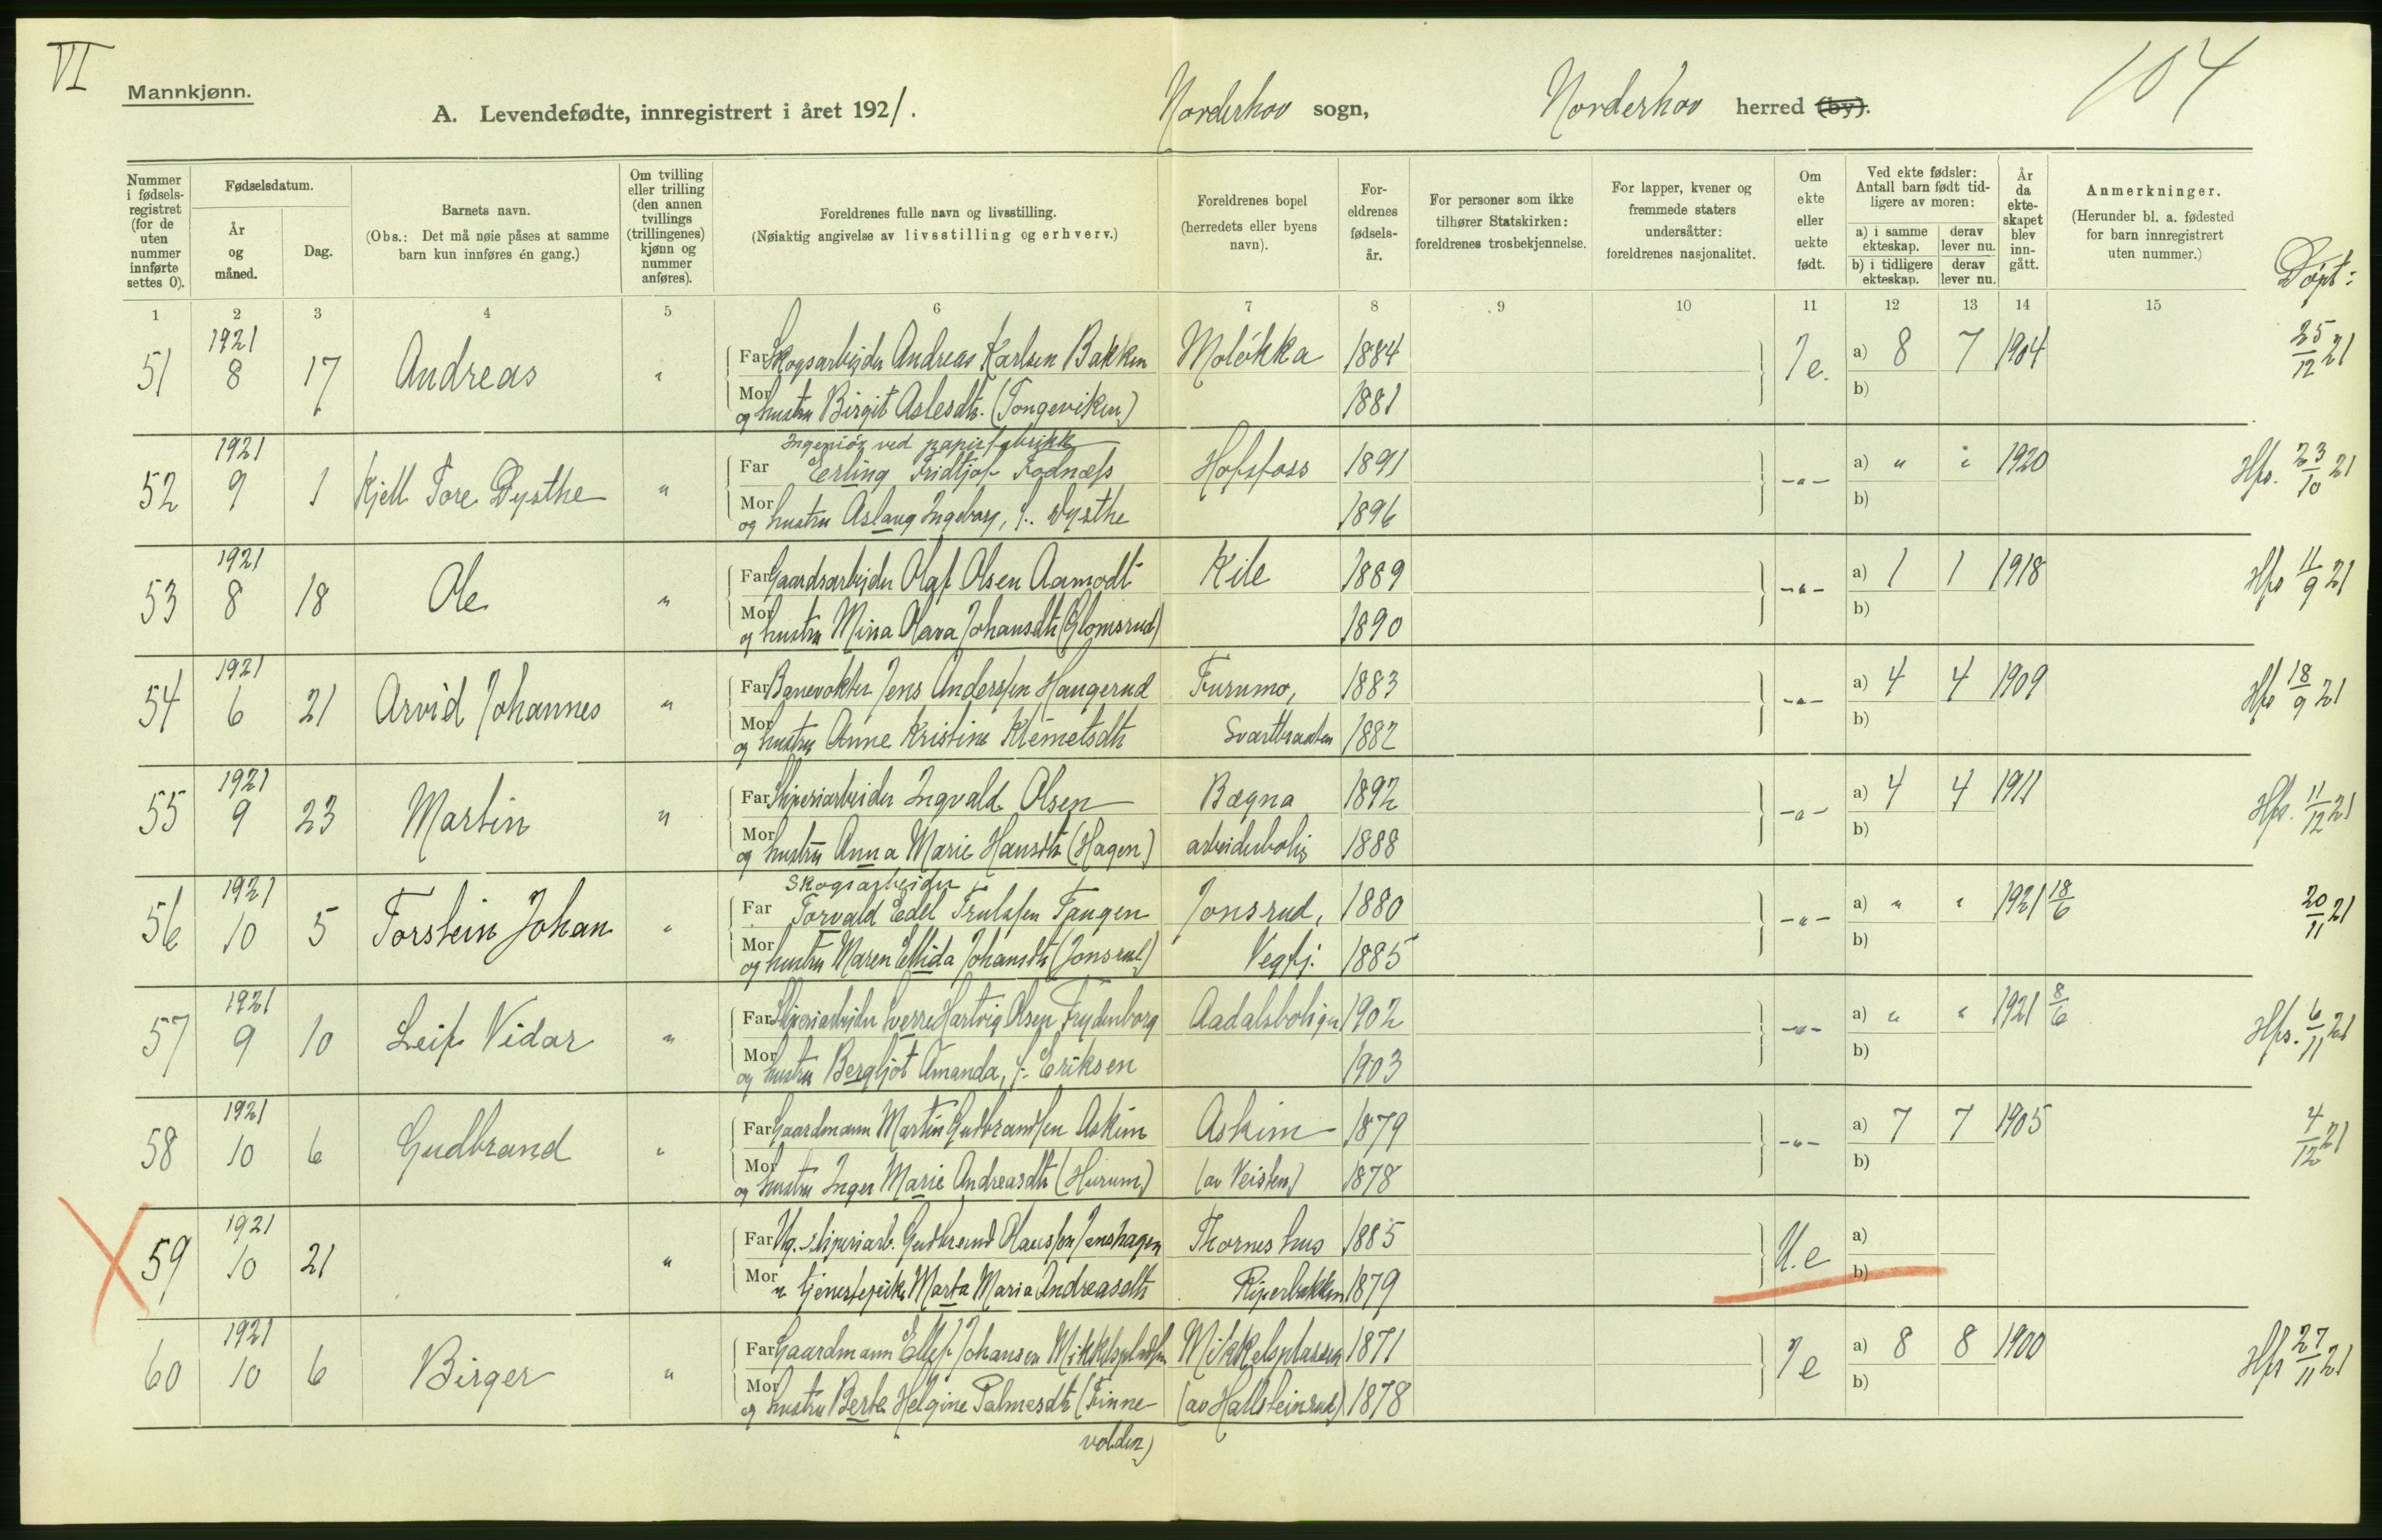 VI
104
Mannkjønn.
A. Levendefødte, innregistrert i året 1921. Norderhov sogn, Norderhov herred (by).
Nummer i fødselsregistret (for de uten nummer innførte settes 0).
Fødselsdatum.
År og måned.
Dag.
Barnets navn.
(Obs.: Det må nøie påses at samme barn kun innføres én gang.)
Om tvilling eller trilling (den annen tvillings (trillingenes) kjønn og nummer anføres).
Foreldrenes fulle navn og livsstilling.
(Nøiaktig angivelse av livsstilling og erhverv.)
Foreldrenes bopel (herredets eller byens navn).
Foreldrenes fødselsår.
For personer som ikke tilhører Statskirken: foreldrenes trosbekjennelse.
For lapper, kvener og fremmede staters undersåtter: foreldrenes nasjonalitet.
Om ekte eller uekte født.
Ved ekte fødsler: Antall barn født tidligere av moren:
a) i samme ekteskap. derav lever nu.
b) i tidligere ekteskap. derav lever nu.
År da ekteskapet blev inngått.
Anmerkninger.
(Herunder bl. a. fødested for barn innregistrert uten nummer.)
Døpt:
1 2 3 4 5 6 7 8 9 10 11 12 13 14 15
1921
51 8 17 Andreas " Far Skogsarbeider Andreas Karlsen Bakken Moløkka 1884 } Ie. a) 8 7 1904 25/12 21
Mor og hustru Birgit Aslesdtr. (Tongeviken) 1881 b)
1921 Ingeniør ved papirfabrikk
52 9 1 Kjell Tore Dysthe " Far Erling Fridtjof Fodnæss Hofsfoss 1891 } -"- a) " " 1920 Hfs. 23/10 21
Mor og hustru Aslaug Ingeborg, f. Dysthe 1896 b)
1921
53 8 18 Ole " Far Gaardsarbeider Olaf Olsen Aamodt Kile 1889 } -"- a) 1 1 1918 Hfs 11/9 21
Mor og hustru Mina Olava Johansdtr (Glomsrud) 1890 b)
1921
54 6 21 Arvid Johannes " Far Banevokter Jens Anderssen Haugerud Furumo, 1883 } -"- a) 4 4 1909 Hfs 18/9 21
Mor og hustru Anne Kristine Klemetsdtr Svartbraaten 1882 b)
1921
55 9 23 Martin " Far Sliperiarbeider Ingvald Olsen Bægna 1892 } -"- a) 4 4 1911 Hfs. 11/12 21
Mor og hustru Anna Marie Hansdtr (Hagen) arbeiderbolig 1888 b)
1921 Skogsarbeider
56 10 5 Torstein Johan " Far Torvald Edel Trulssen Tangen Jonsrud, 1880 } -"- a) " " 1921 18/6 20/11 21
Mor og hustru Maren Ellida Johansdtr (Jonsrud) Vegfj. 1885 b)
1921
57 9 10 Leif Vidar " Far Sliperiarbeider Sverre Hartvig Olsen Frydenborg Aadalsboligen 1902 } -"- a) " " 1921 8/6 Hfs. 6/11 21
Mor og hustru Bergljot Amanda, f. Eriksen 1903 b)
1921
58 10 6 Gudbrand " Far Gaardmann Martin Gudbrandsen Askim Askim 1879 } -"- a) 7 7 1905 4/12 21
Mor og hustru Inger Marie Andreasdtr (Hurum) (av Veisten) 1878 b)
1921
59 10 21 " Far Ug. sliperiarb. Gudbrand Olaussen Jenshagen Thorneshus 1885 } U.e a)
Mor " tjenestepike Marta Maria Andreasdtr Riperbakken 1879 b)
1921
60 10 6 Birger " Far Gaardmann Ellef Johansen Mikkelsplassen Mikkelsplassen 1871 } Ie a) 8 8 1900 Hfs 27/11 21
Mor og hustru Berte Helgine Palmesdtr (Finne- (av Hallsteinrud) 1878 b)
volden)